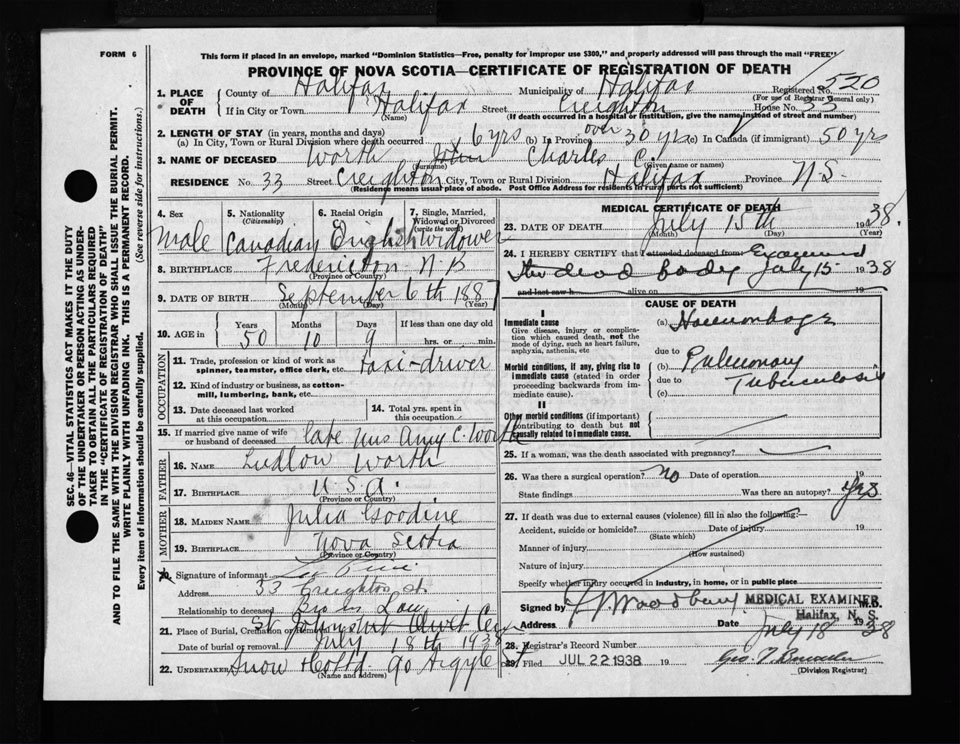 FORM 6
This form if placed in an envelope, marked "Dominion Statistics—Free, penalty for improper use $300," and properly addressed will pass through the mail "FREE"
PROVINCE OF NOVA SCOTIA—CERTIFICATE OF REGISTRATION OF DEATH
1. PLACE OF DEATH
County of Halifax Municipality of Halifax Registered No. 520
(For use of Registrar General only)
If in City or Town Halifax Street Creighton House No. 33
(Name) (If death occurred in a hospital or institution, give the name instead of street and number)
2. LENGTH OF STAY (in years, months and days)
(a) In City, Town or Rural Division where death occurred 6 yrs (b) In Province over 30 yrs (c) In Canada (if immigrant) 50 yrs
3. NAME OF DECEASED Worth John Charles C.
(Surname) (Given name or names)
RESIDENCE No. 33 Street Creighton City, Town or Rural Division Halifax Province N.S.
(Residence means usual place of abode. Post Office Address for residents in rural parts not sufficient)
4. Sex
5. Nationality
(Citizenship)
6. Racial Origin
7. Single, Married, Widowed or Divorced
(write the word)
Male Canadian English Widower
8. BIRTHPLACE Fredericton N.B
(Province or Country)
9. DATE OF BIRTH September 6th 1887
(Month) (Day) (Year)
10. AGE in
Years Months Days If less than one day old
50 10 9 hrs. or min.
OCCUPATION
11. Trade, profession or kind of work as spinner, teamster, office clerk, etc. taxi-driver
12. Kind of industry or business, as cotton-mill, lumbering, bank, etc.
13. Date deceased last worked at this occupation
14. Total yrs. spent in this occupation
15. If married give name of wife or husband of deceased late Mrs Amy C. Worth
FATHER
16. NAME Ludlow Worth
17. BIRTHPLACE U.S.A.
(Province or Country)
MOTHER
18. MAIDEN NAME Julia Goodine
19. BIRTHPLACE Nova Scotia
(Province or Country)
20. Signature of informant
Address 33 Creighton St
Relationship to deceased Bro in Law
21. Place of Burial, Cremation or Removal St Johns Olivet
Date of burial or removal July 18th 1938
22. UNDERTAKER Snow 90 Argyle St
(Name and address)
MEDICAL CERTIFICATE OF DEATH
23. DATE OF DEATH July 15th 1938.
(Month) (Day) (Year)
24. I HEREBY CERTIFY that I attended deceased from Examined
the dead body July 15 1938
and last saw h alive on 19
CAUSE OF DEATH
I
Immediate cause
Give disease, injury or complication which caused death, not the mode of dying, such as heart failure, asphyxia, asthenia, etc
(a) Haemorrhage
due to
Morbid conditions, if any, giving rise to immediate cause (stated in order proceeding backwards from immediate cause).
(b) Pulmonary
due to Tuberculosis
(c)
II
Other morbid conditions (if important) contributing to death but not causally related to immediate cause.
25. If a woman, was the death associated with pregnancy?
26. Was there a surgical operation? no Date of operation 19
State findings Was there an autopsy? yes
27. If death was due to external causes (violence) fill in also the following:—
Accident, suicide or homicide? Date of injury 19
(State which)
Manner of injury
(How sustained)
Nature of injury
Specify whether injury occurred in industry, in home, or in public place
Signed by Woodbury MEDICAL EXAMINER M.D.
Halifax, N. S.
Address Date July 18 1938
28. Registrar's Record Number
29. Filed JUL 22 1938
(Division Registrar)
SEC. 46—VITAL STATISTICS ACT MAKES IT THE DUTY
OF THE UNDERTAKER OR PERSON ACTING AS UNDERTAKER TO OBTAIN ALL THE PARTICULARS REQUIRED
IN THE "CERTIFICATE OF REGISTRATION OF DEATH"
AND TO FILE THE SAME WITH THE DIVISION REGISTRAR WHO SHALL ISSUE THE BURIAL PERMIT.
WRITE PLAINLY WITH UNFADING INK. THIS IS A PERMANENT RECORD.
Every item of information should be carefully supplied. (See reverse side for instructions.)